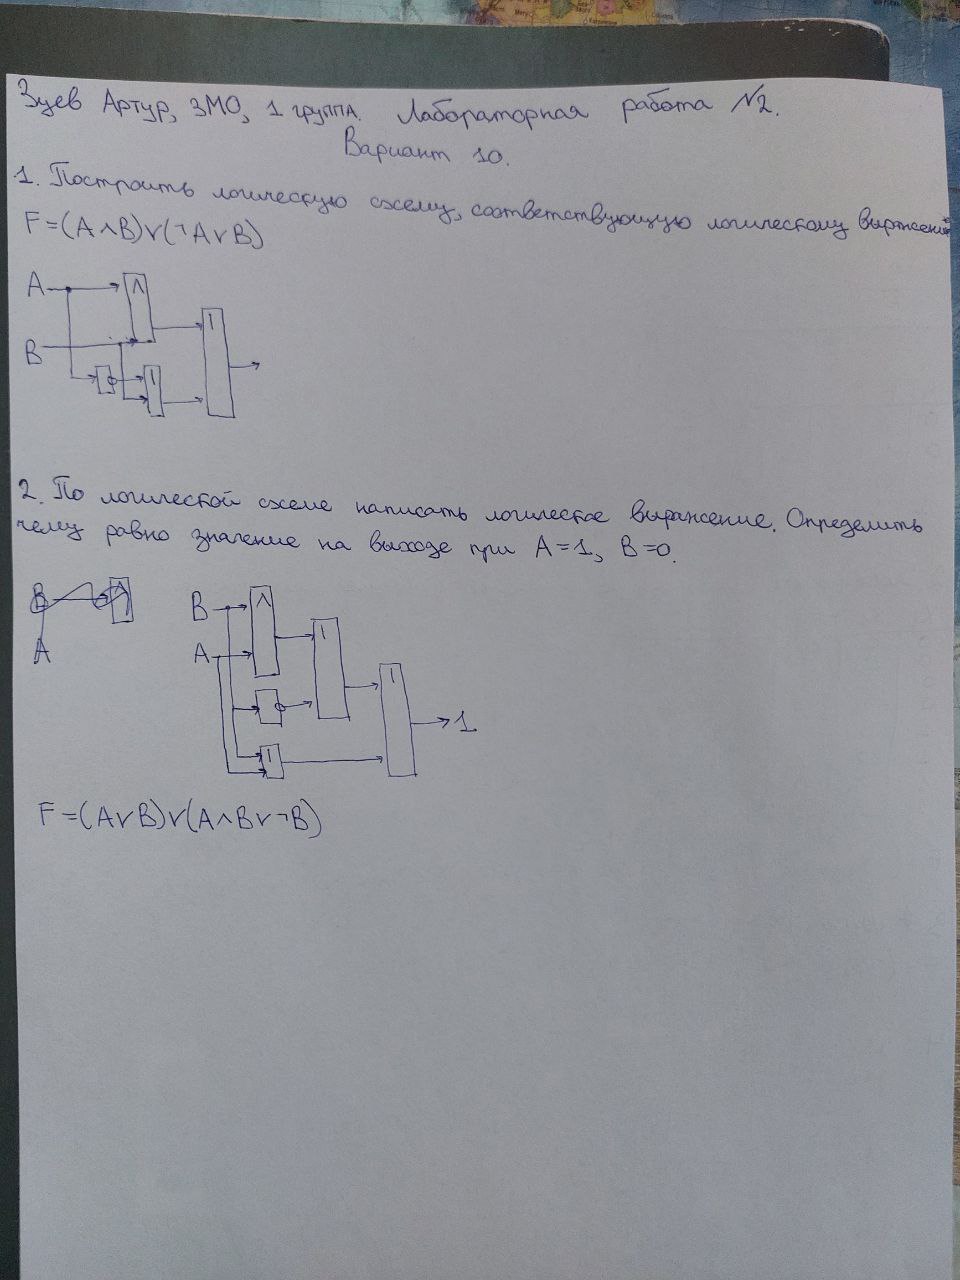 Зуев Артур, 3МО, 1 группа. Лабораторная работа №2.
Вариант 10.
1. Построить логическую схему, соответствующую логическому выражению
F=(A∧B)∨(¬A∨B)
A
∧
1
B
1
2. По логической схеме написать логическое выражение. Определить
чему равно значение на выходе при A=1, B=0.
B
∧
A
B
∧
1
A
1
1
1
F=(A∨B)∨(A∧B∨¬B)